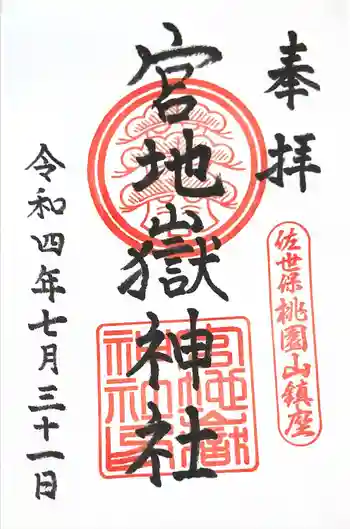 奉拝
佐世保桃園山鎮座
宮地嶽神社
令和四年七月三十一日